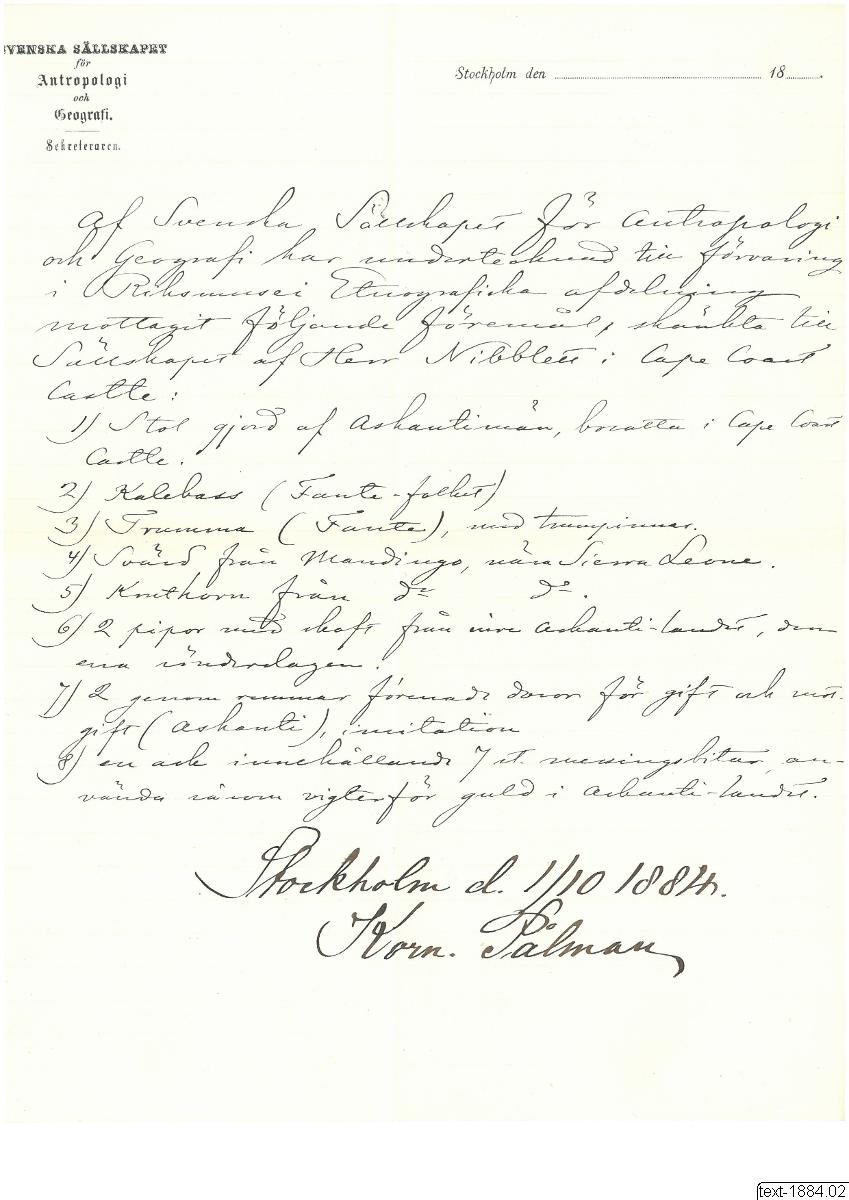 SVENSKA SÄLLSKAPET
för
Antropologi
och
Geografi.
Sekreteraren.
Stockholm den 18 .
Af Svenska Sällskapet för Antropologi
och Geografi har undertecknad till förvaring
i Riksmusei Etnografiska afdelning
mottagit följande föremål, skänkta till
Sällskapet af Herr Nibblett i Cape Coast
Castle:
1) Stol gjord af Ashantimän, bosatta i Cape Coast
Castle.
2) Kalebass (Fante-folket)
3) Trumma (Fante), med trumpinnar.
4) Svärd från Mandingo, nära Sierra Leone.
5) Kruthorn från do do.
6) 2 pipor med skaft från inre Ashanti-landet, den
ena sönderslagen.
7) 2 genom remmar förenade dosor för gift och mot-
gift (Ashanti), imitation
8) en ask innehållande 7 st. messingsbitar, an-
vända såsom vigter för guld i Ashanti-landet.
Stockholm d. 1/10 1884.
Korn. Pålman
text-1884.02